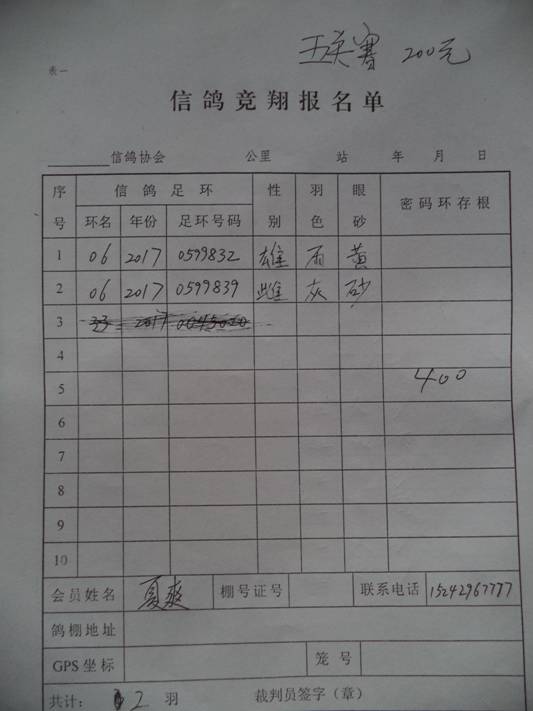 五关赛 200元
表一
信鸽竞翔报名单
信鸽协会 公里 站 年 月 日
序号 信鸽足环 性别 羽色 眼砂 密码环存根
环名 年份 足环号码
1 06 2017 0599832 雄 雨 黄
2 06 2017 0599839 雌 灰 砂
3 33 2017
4
5 400
6
7
8
9
10
会员姓名 夏爽 棚号证号 联系电话 15242967777
鸽棚地址
GPS坐标 笼号
共计: 2 羽 裁判员签字（章）